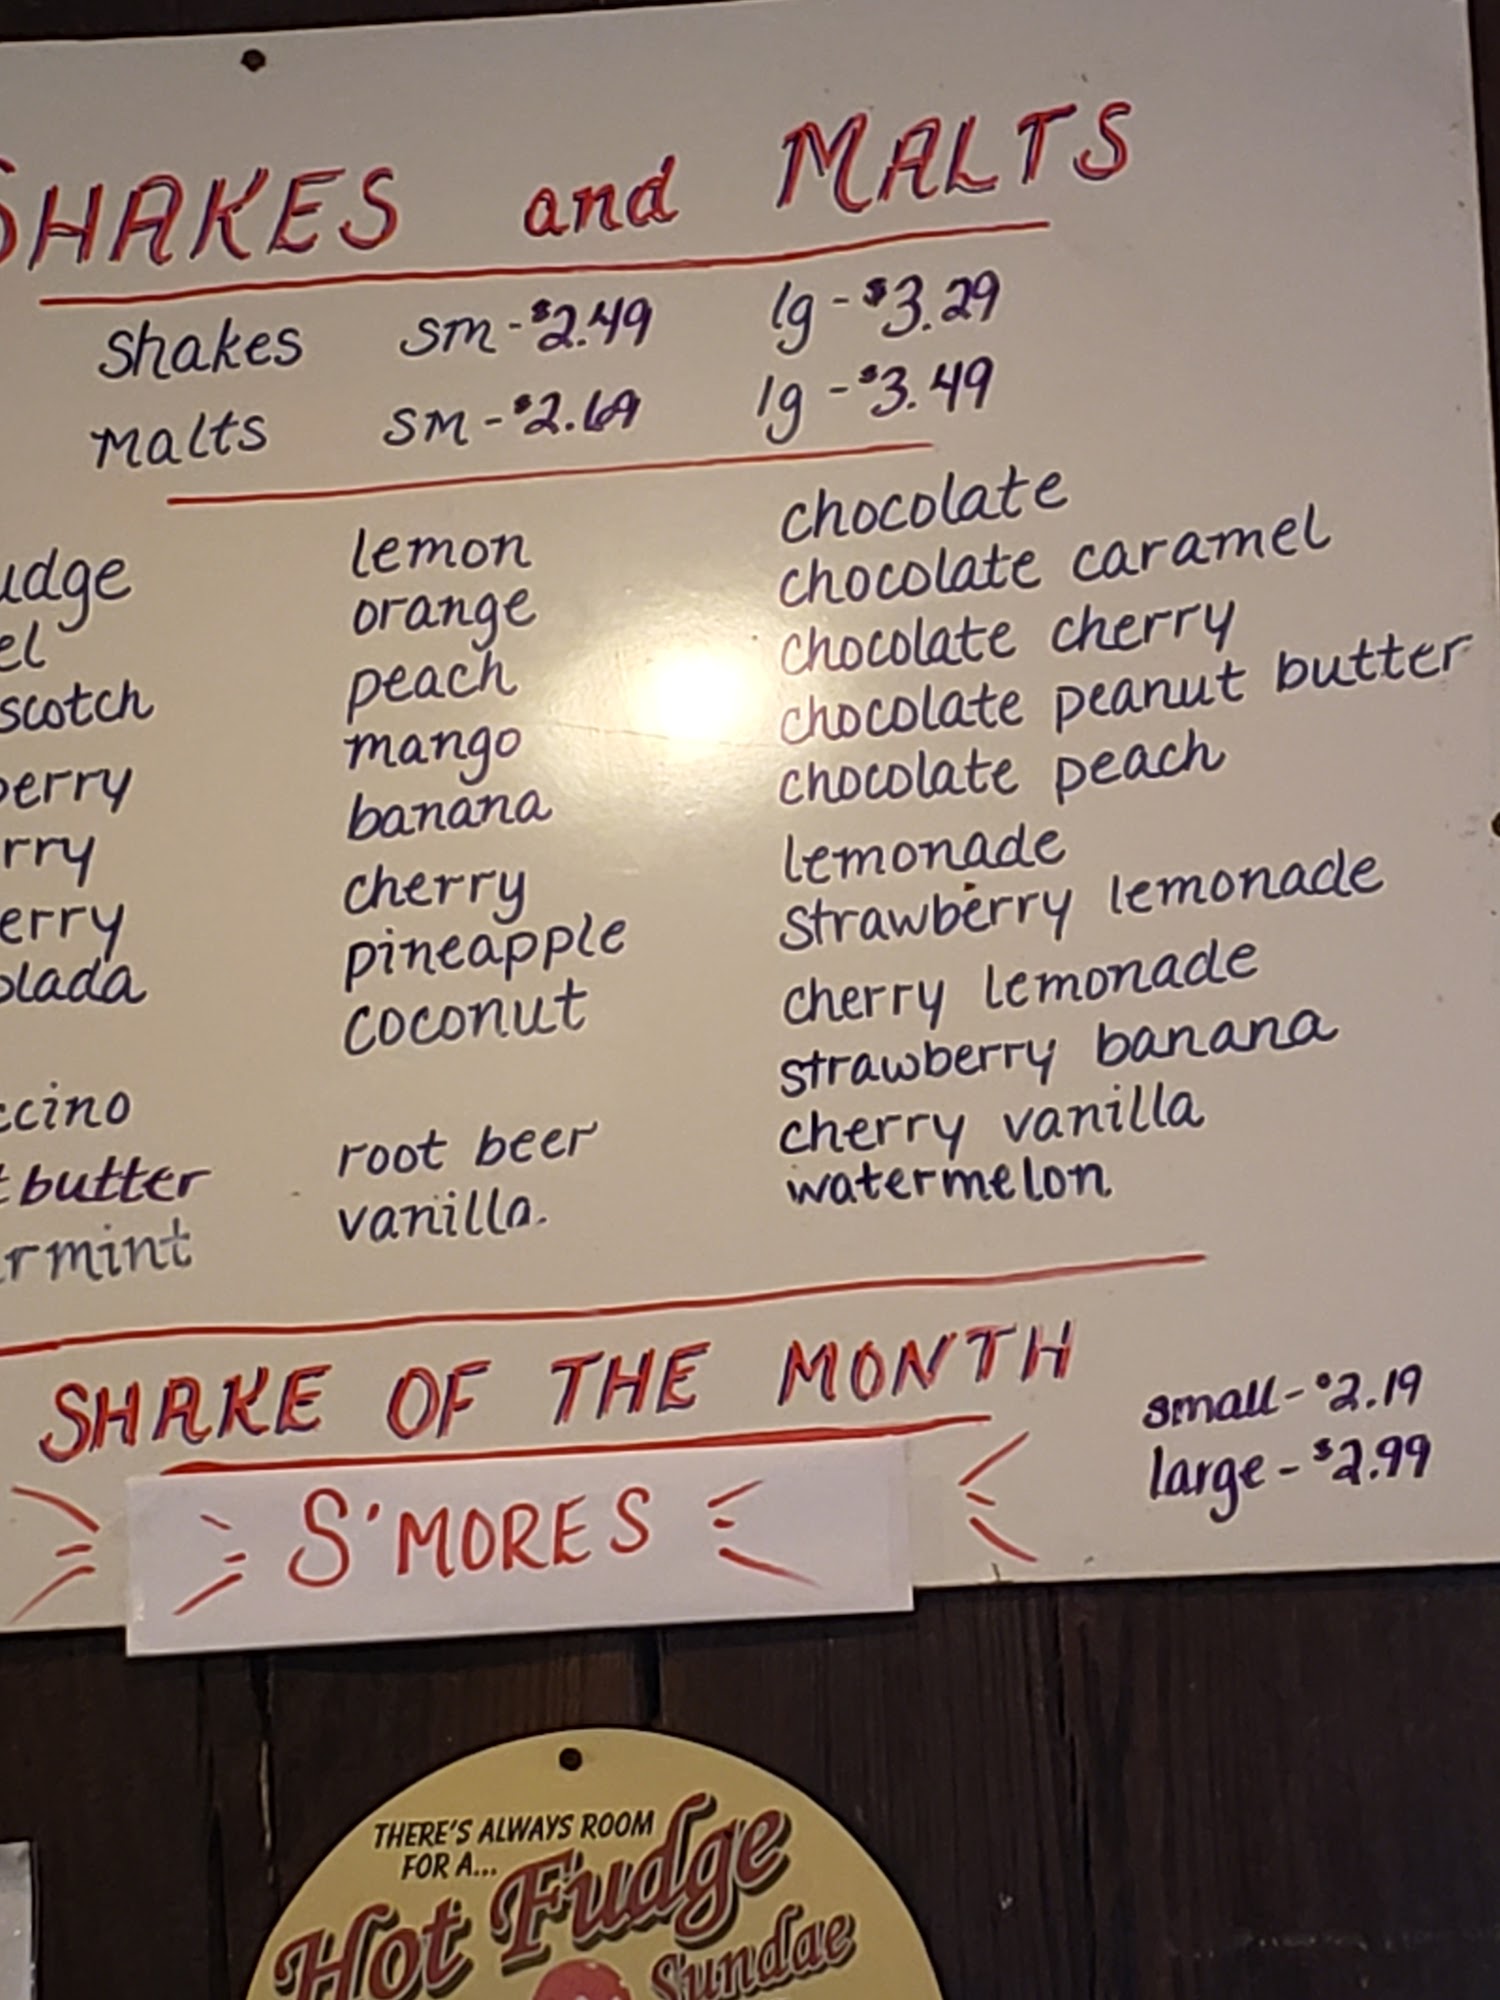 SHAKES and MALTS
Shakes sm-$2.49 lg-$3.29
Malts sm-$2.69 lg-$3.49
lemon
orange
peach
mango
banana
cherry
pineapple
coconut
butter
root beer
vanilla.
chocolate
chocolate caramel
chocolate cherry
chocolate peanut butter
chocolate peach
lemonade
strawberry lemonade
cherry lemonade
strawberry banana
cherry vanilla
watermelon
SHAKE OF THE MONTH
small-$2.19
large-$2.99
S'MORES
THERE'S ALWAYS ROOM
FOR A...
Hot Fudge
Sundae